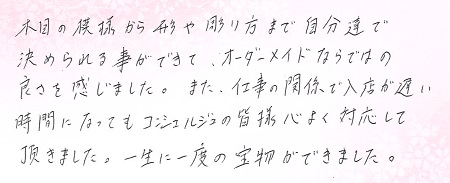 木目の模様から形や彫り方まで自分達で
決められる事ができて、オーダーメイドならではの
良さを感じました。また、仕事の関係で入店が遅い
時間になってもコンシェルジュの皆様心よく対応して
頂きました。一生に一度の宝物ができました。